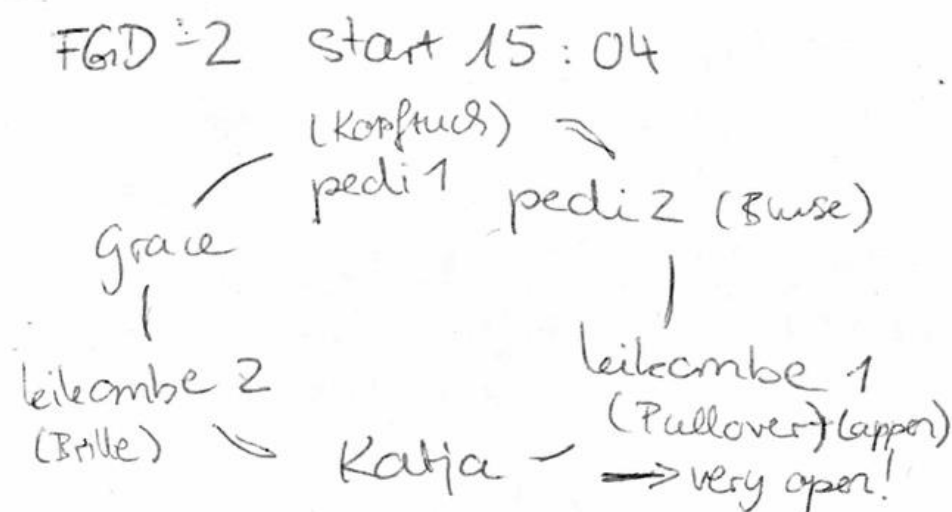 FGD-2 start 15:04
(Kopftuch)
pedi 1
pedi 2 (Bluse)
Grace
kikombe 2
(Brille)
kikombe 1
(Pullover)
Katja
→ very open!